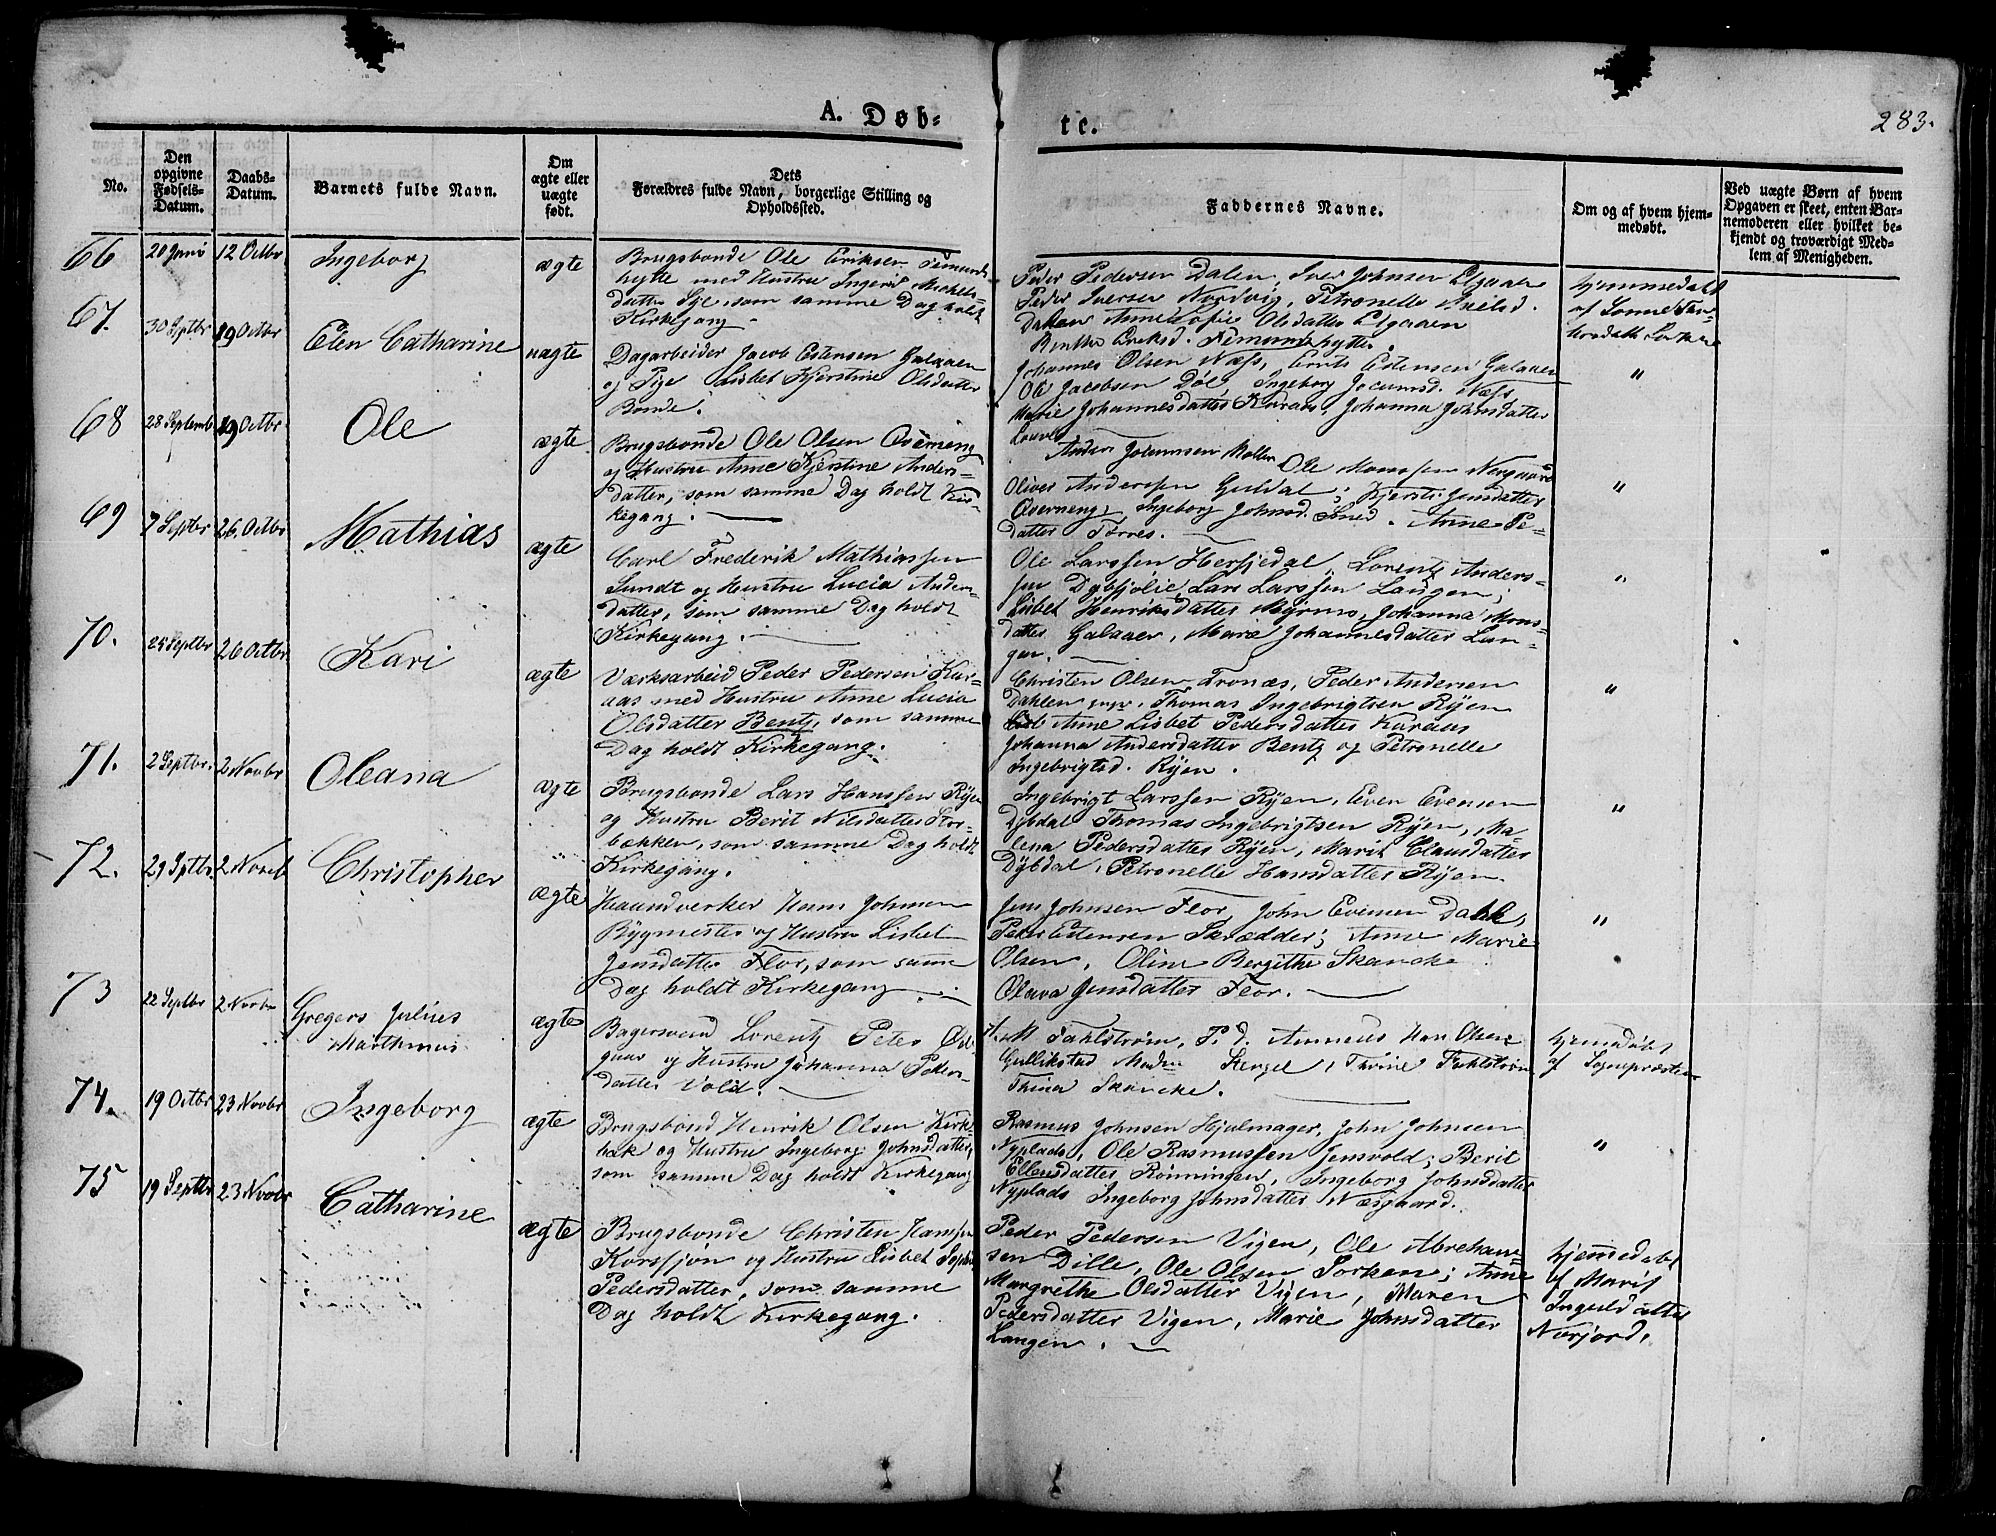 A. Døb-
te.
283.
No.
Den opgivne Fødsels-Datum.
Daabs-Datum.
Barnets fulde Navn.
Om ægte eller uægte født.
Dets Forældres fulde Navn, borgerlige Stilling og Opholdssted.
Faddernes Navne.
Om og af hvem hjemmedøbt.
Ved uægte Børn af hvem Opgaven er skeet, enten Barnemoderen eller hvilket bekjendt og troværdigt Medlem af Menigheden.
66
20 Juni
12 Octbr
Ingeborg
ægte
Brugsbonde Ole Eriksen Femunds-
hytte med Hustru Ingeri Mickels-
datter, som samme Dag holdt
Kirkegang
Peder Pedersen Dalen, Iver Johnsen Elgaaen
Peder Iversen Nordvig, Petronelle
Dahlen Anne Sofie Olsdatter Elgaaen
Femundshytte.
Hjemmedøbt
af
67.
30 Septbr
19 Octbr
Elen Catharine
uægte
Dagarbeider Jacob Estensen Galaaen
og Pige Lisbet Kjerstine Olsdatter
Bonde.
Johannes Olsen Næss, Estensen Galaaen
Ole Jacobsen Døl, Ingeborg Næss
Marie Johannesdatter Kuraas, Johanna Johnsdatter
"
68
28 Septemb
19 Octbr
Ole
ægte
Brugsbonde Ole Olsen Øverneng
og Hustru Anne Kjerstine Anders-
datter, som samme Dag holdt Kir-
kegang.
Ole Monssen Norgaard
Oliver Anderssen Guldal, Kjersti Jensdatter
Øverneng, Ingeborg Johnsd. Smed. Anne Pe-
datter Tørres.
"
69
7 Septbr
26. Octbr
Mathias
ægte
Carl Frederik Mathiassen
Sundt og Hustru Lucia Anders-
datter, som samme Dag holdt
Kirkegang.
Ole Larssen Herjedal, Lorentz Anders-
sen Lars Larssen Langen,
Lisbet Henriksdatter Myrmo, Johanna Mons-
datter Galaaen, Marie Johannesdatter Lan-
gen.
"
70.
25 Septbr
26 Octbr
Kari
ægte
Værksarbeid Peder Pedersen Kur-
aas med Hustru Anne Lucia
Olsdatter Bentz, som samme
Dag holdt Kirkegang.
Christen Olsen Tronæs, Peder Andersen
Dahlen Thomas Ingebrigtsen Ryen
Anne Lisbet Pedersdatter Kuraas
Johanna Andersdatter Bentz og Petronelle
Ingebrigtsd. Ryen.
"
71.
2 Septbr.
2 Novbr
Oleana
ægte
Brugsbonde Lars Hanssen Ryen
og Hustru Berit Nilsdatter Stor-
bækken, som samme Dag holdt
Kirkegang.
Ingebrigt Larssen Ryen, Even Evensen
Dybdal Thomas Ingebrigtsen Ryen, Ma-
lena Pedersdatter Ryen, Marit Clausdatter
Dybdal, Petronelle Hansdatter Ryen.
"
72.
29 Sptbr.
2 Novb
Christopher
ægte
Haandverker Hans Johnsen
Bygmester og Hustru Lisbet
Jensdatter Flor, som samme
Dag holdt Kirkegang
Jens Johnsen Flor, John Evensen Dahl,
Peter Estensen Skrædder, Anne Marie
Olsen, Oline Bergithe Skancke
Olava Jensdatter Flor.
"
73
22 Septbr
2 Novbr
Gregers Julius
Marthinus
ægte
Bagersvend Lorentz Peter Øde-
gaar og Hustru Johanna Peders-
datter Vold.
Fahlstrøm, P. d. Han Olsen
Gullikstad Madm Stengel, Thrine Fahlstrøm
Thina Skancke.
hjemmedøbt
af Sognepræsten
74.
19 Octbr
23 Novbr
Ingeborg
ægte
Brugsbond Henrik Olsen Kirk-
bak og Hustru Ingeborg Johnsdatter,
som samme Dag holdt Kirkegang
Rasmus Johnsen Hjulmager, John Johnsen
Nyplads, Ole Rasmussen Jensvold, Berit
Ellensdatter Rønningen, Ingeborg Johnsdatter
Nyplads Ingeborg Johnsdatter Næsgaard.
"
75
19 Septbr
23 Novbr
Catharine
ægte
Brugsbonde Christen Hanssen
Korssjøn og Hustru Lisbet Sophie
Pedersdatter, som samme
Dag holdt Kirkegang.
Peder Pedersen Vigen, Ole Abraham-
sen Dille, Ole Olsen Sorken; Anne
Margrethe Olsdatter Vigen, Maren
Pedersdatter Vigen, Marie Johnsdatter
Langen.
hjemmedøbt
af Marit
Inguldatter
Norjord.